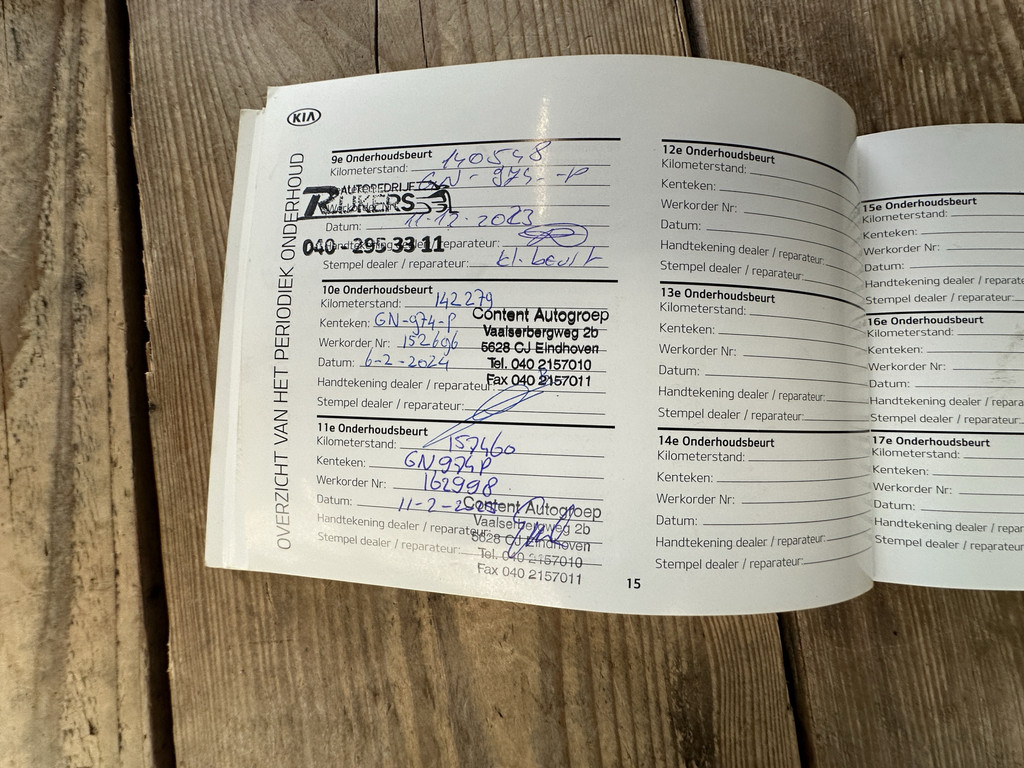 KIA
OVERZICHT VAN HET PERIODIEK ONDERHOUD
9e Onderhoudsbeurt
Kilometerstand: 140548
GN-974-P
AUTOBEDRIJF
RIJKERS
Datum: 11-12-2023
040-295 33 11
Handtekening dealer / reparateur:
Stempel dealer / reparateur: kl. beurt
10e Onderhoudsbeurt
Kilometerstand: 142279
Kenteken: GN-974-P
Werkorder Nr: 152696
Datum: 6-2-2024
Handtekening dealer / reparateur:
Stempel dealer / reparateur:
Content Autogroep
Vaalserbergweg 2b
5628 CJ Eindhoven
Tel. 040 2157010
Fax 040 2157011
11e Onderhoudsbeurt
Kilometerstand: 157460
Kenteken: GN974P
Werkorder Nr: 162998
Datum: 11-2-2025
Handtekening dealer / reparateur:
Stempel dealer / reparateur:
Content Autogroep
Vaalserbergweg 2b
5628 CJ Eindhoven
Tel. 040 2157010
Fax 040 2157011
12e Onderhoudsbeurt
Kilometerstand:
Kenteken:
Werkorder Nr:
Datum:
Handtekening dealer / reparateur:
Stempel dealer / reparateur:
13e Onderhoudsbeurt
Kilometerstand:
Kenteken:
Werkorder Nr:
Datum:
Handtekening dealer / reparateur:
Stempel dealer / reparateur:
14e Onderhoudsbeurt
Kilometerstand:
Kenteken:
Werkorder Nr:
Datum:
Handtekening dealer / reparateur:
Stempel dealer / reparateur:
15
15e Onderhoudsbeurt
Kilometerstand:
Kenteken:
Werkorder Nr:
Datum:
Handtekening dealer / repara
Stempel dealer / reparateur:
16e Onderhoudsbeurt
Kilometerstand:
Kenteken:
Werkorder Nr:
Datum:
Handtekening dealer / repara
Stempel dealer / reparateur:
17e Onderhoudsbeurt
Kilometerstand:
Kenteken:
Werkorder Nr:
Datum:
Handtekening dealer / repar
Stempel dealer / reparateur: